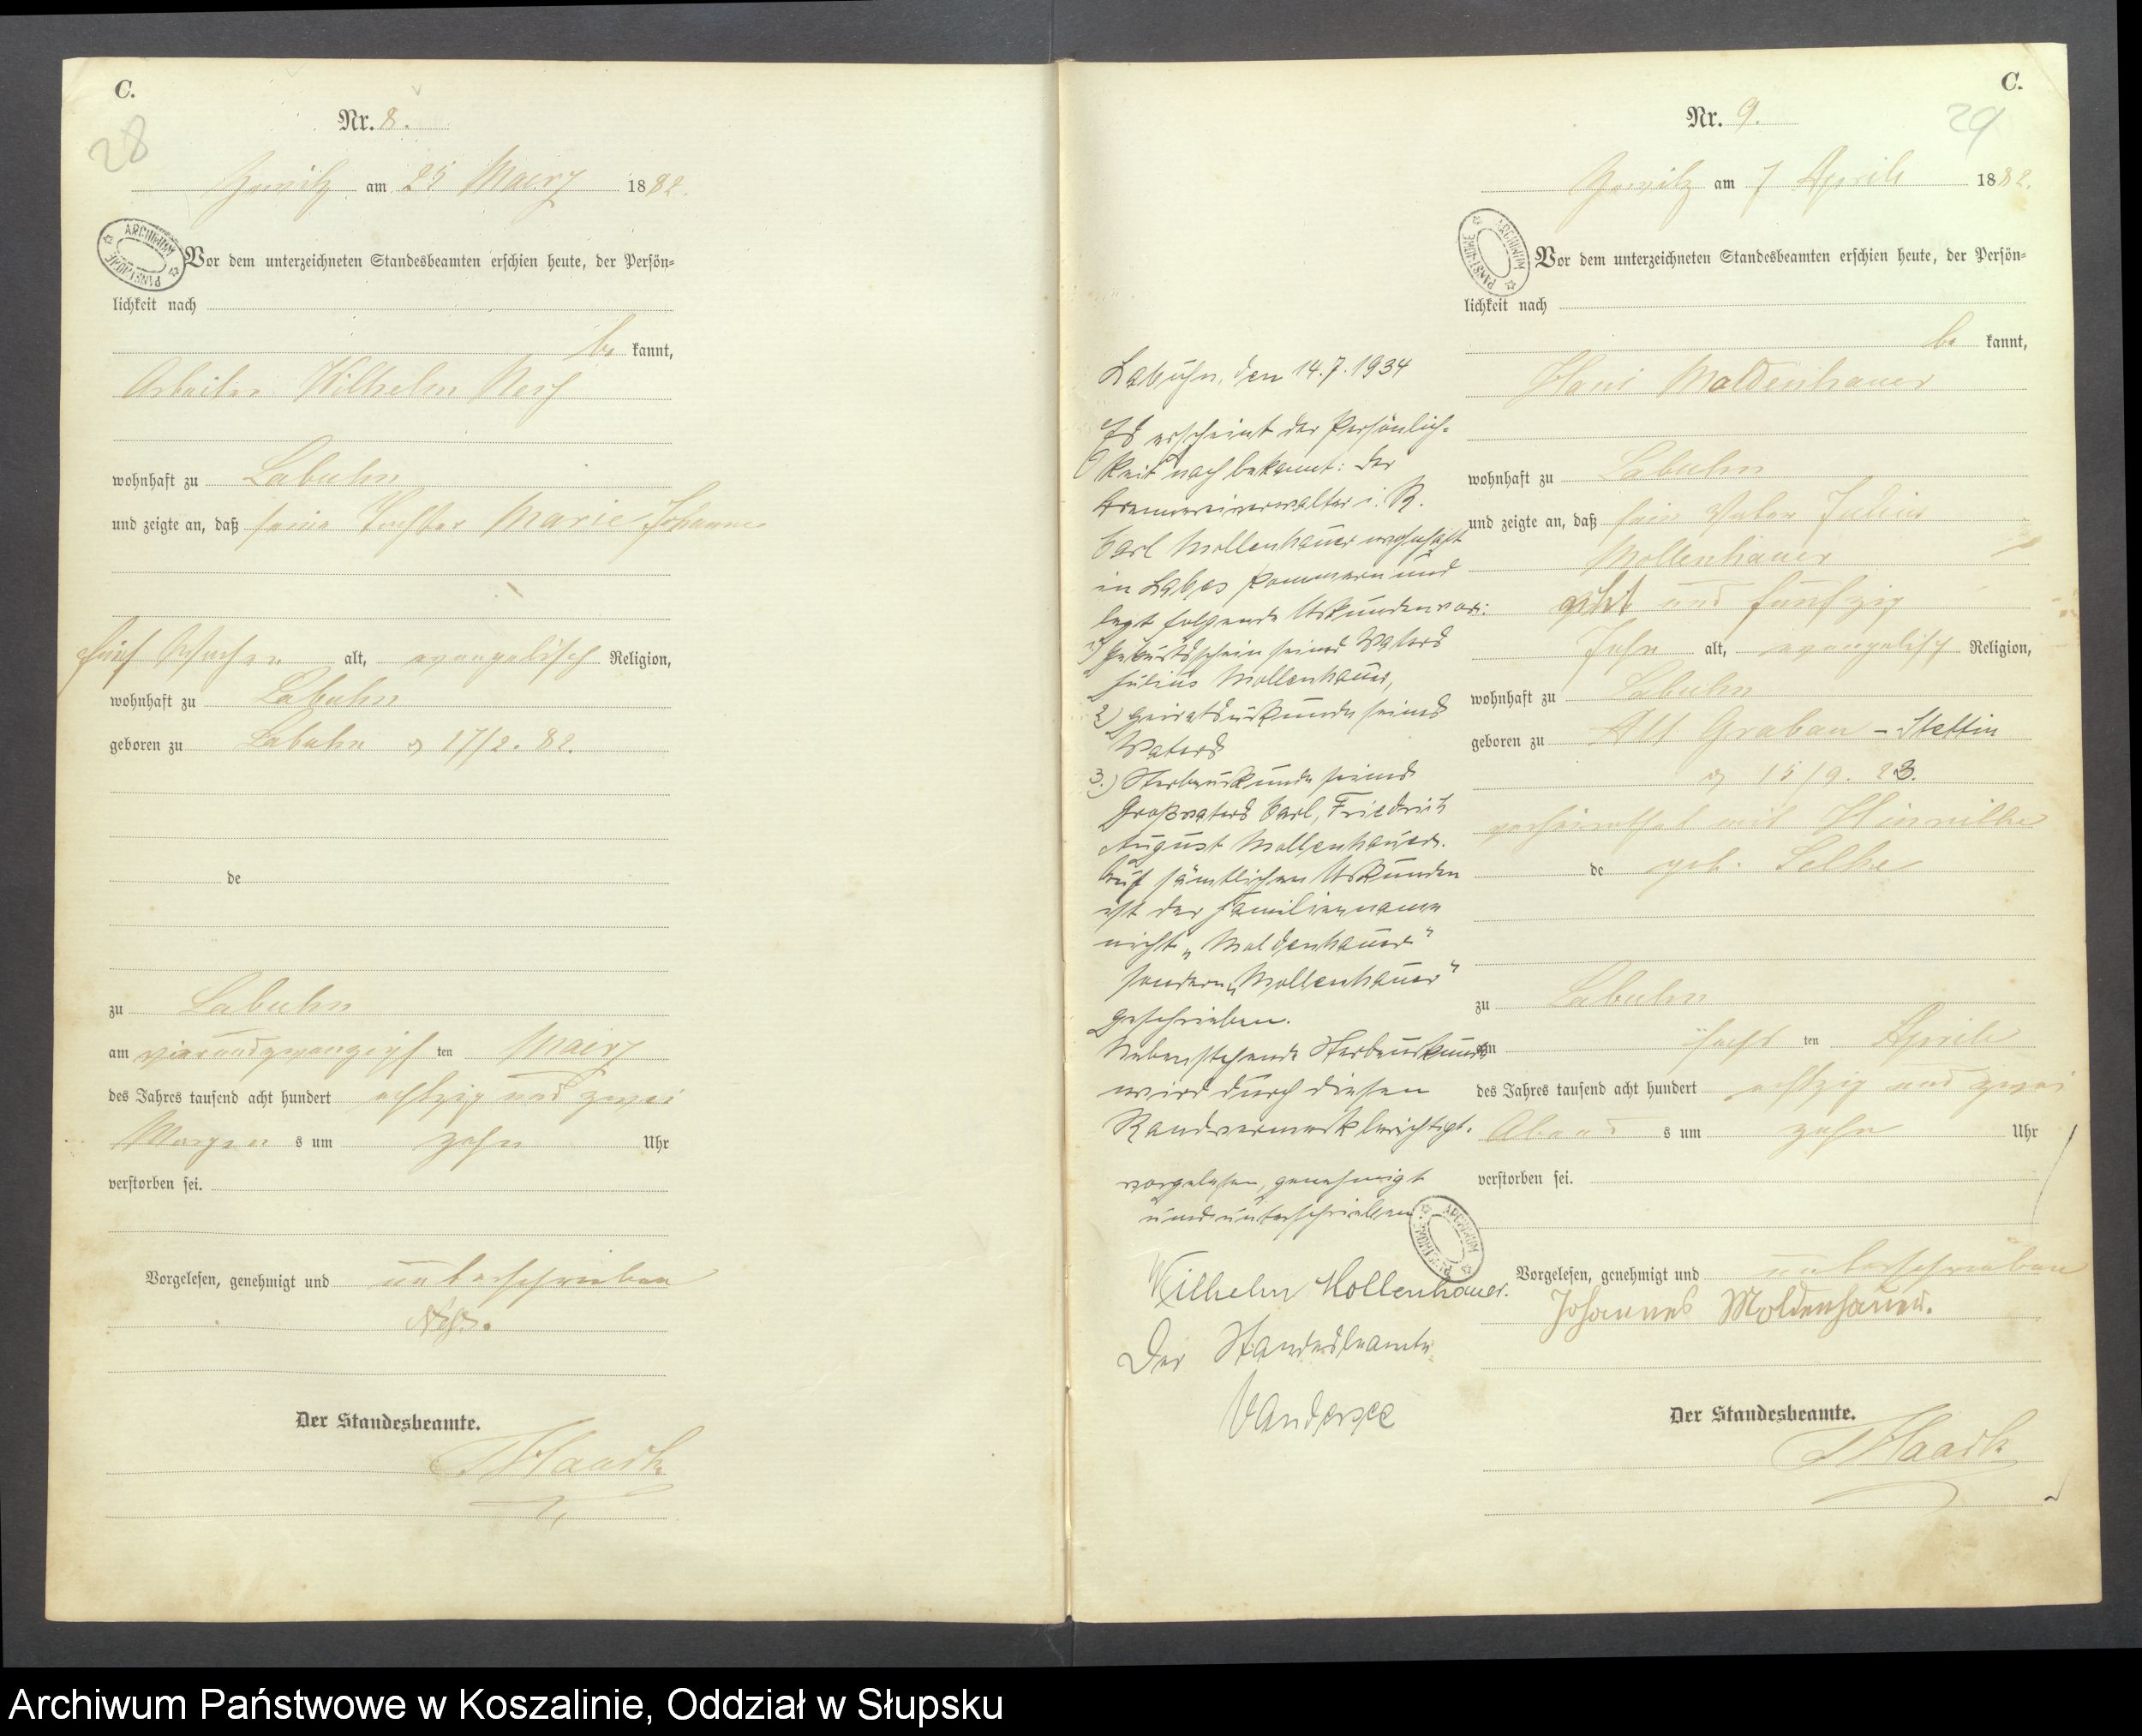 C.
28
Nr. 8.
am 25 Maerz 1882.
ARCHIWUM PAŃSTWOWE
Vor dem unterzeichneten Standesbeamten erschien heute, der Persön=
lichkeit nach
be kannt,
Arbeiter Wilhelm
wohnhaft zu Labuhn
und zeigte an, daß seine Tochter Marie Johanne
fünf Wochen alt, evangelisch Religion,
wohnhaft zu Labuhn
geboren zu Labuhn d 17/2. 82.
de
zu Labuhn
am vierundzwanzigst ten Maerz
des Jahres tausend acht hundert achtzig und zwei
Morgen s um zehn Uhr
verstorben sei.
Vorgelesen, genehmigt und unterschrieben
Der Standesbeamte.
Haack
C.
29
Nr. 9.
am 7 Aprile 1882.
ARCHIWUM PAŃSTWOWE
Vor dem unterzeichneten Standesbeamten erschien heute, der Persön=
lichkeit nach
be kannt,
Hans Moldenhauer
wohnhaft zu Labuhn
und zeigte an, daß sein Vater Julius
Mollenhauer
acht und fünfzig
Jahr alt, evangelisch Religion,
wohnhaft zu Labuhn
geboren zu Alt Grabau - Stettin
d 15/9. 23.
verheirathet mit
de geb. Selke
zu Labuhn
am sechs ten Aprile
des Jahres tausend acht hundert achtzig und zwei
Abend s um zehn Uhr
verstorben sei.
Vorgelesen, genehmigt und unterschrieben
Johannes Moldenhauer.
Der Standesbeamte.
Haack
Labuhn, den 14.7.1934
Es erscheint der Persönlich-
keit nach bekannt: der
i. R.
Carl Mollenhauer wohnhaft
in Labes Pommern und
legt folgende Urkunden vor:
1) Geburtsschein seines Vaters
Julius Mollenhauer,
2) Heiratsurkunde seines
Vaters
3.) Sterbeurkunde seines
Großvaters Carl, Friedrich
August Mollenhauer.
Auf sämtlichen Urkunden
ist der Familienname
nicht „Moldenhauer"
sondern „Mollenhauer"
geschrieben.
Nebenstehende Sterbeurkunde
wird durch diesen
Randvermerk berichtigt.
vorgelesen, genehmigt
und unterschrieben
ARCHIWUM PAŃSTWOWE
Wilhelm Mollenhauer.
Der Standesbeamte
Vandersee
Archiwum Państwowe w Koszalinie, Oddział w Słupsku